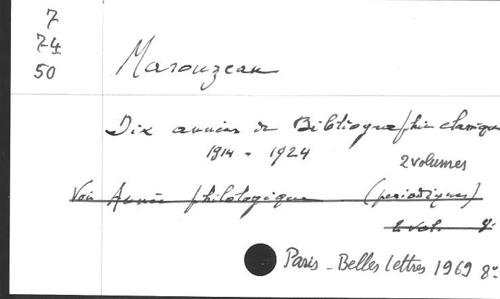 7
74
50
Marouzeau
Dix années de Bibliographie classique
1914 - 1924
2 volumes
Voir Année philologique (periodiques)
2 vol. 8°
Paris - Belles lettres 1969 8°